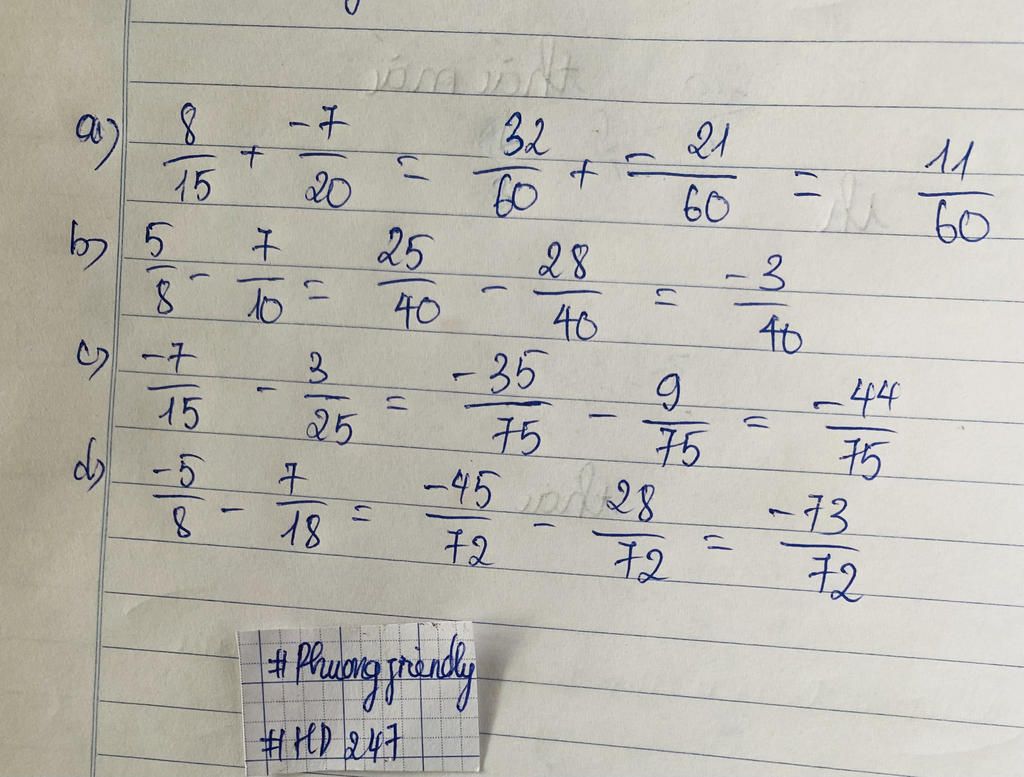 a) 8/15 + -7/20 = 32/60 + -21/60 = 11/60
b) 5/8 - 7/10 = 25/40 - 28/40 = -3/40
c) -7/15 - 3/25 = -35/75 - 9/75 = -44/75
d) -5/8 - 7/18 = -45/72 - 28/72 = -73/72
#Phuongfriendly
#HD 247